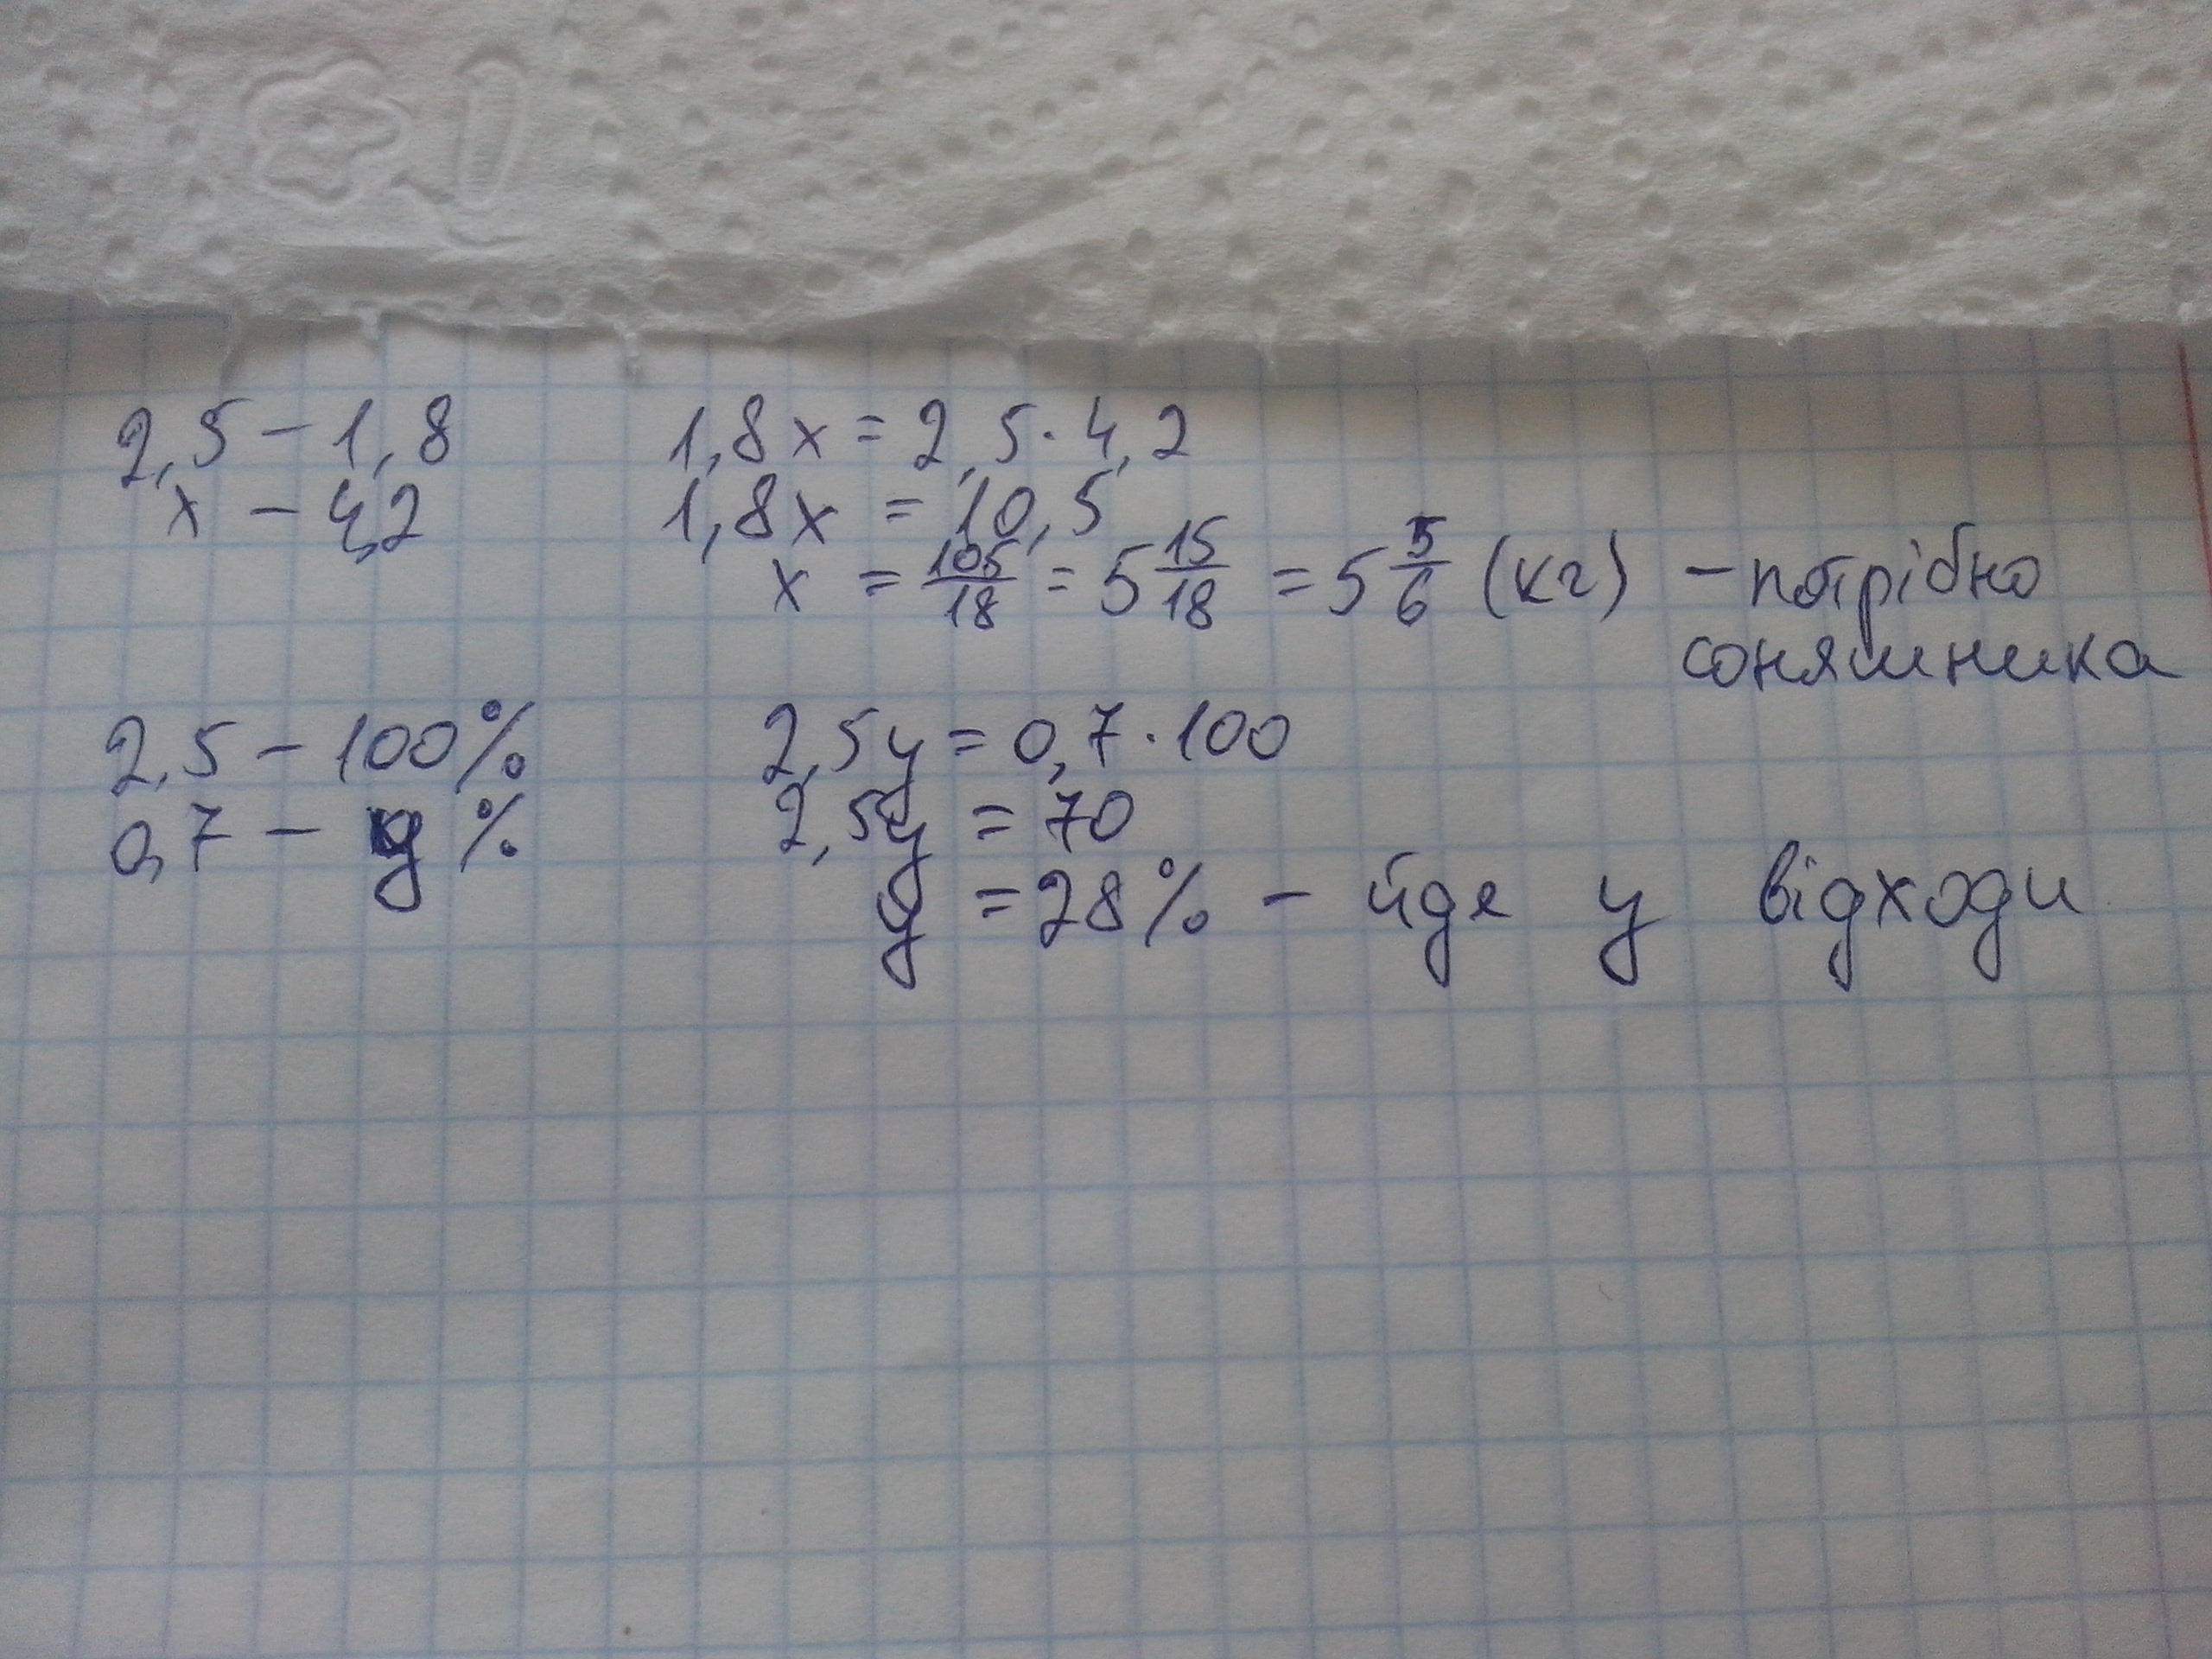 2,5 – 1,8 1,8x = 2,5 · 4,2
x – 4,2 1,8x = 10,5
x = 105/18 = 5 15/18 = 5 5/6 (кг) – потрібно
соняшника
2,5 – 100% 2,5y = 0,7 · 100
0,7 – y % 2,5y = 70
y = 28% – йде у відходи